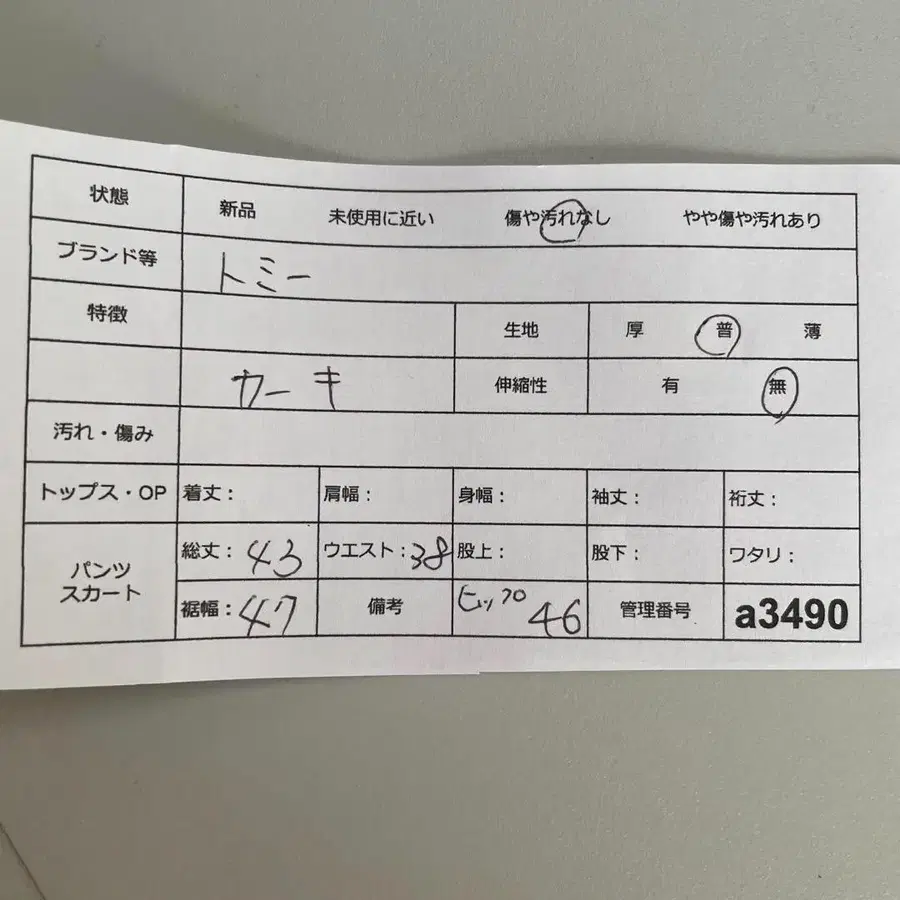 状態 新品 未使用に近い 傷や汚れなし やや傷や汚れあり
ブランド等 トミー
特徴 生地 厚 普 薄
カーキ 伸縮性 有 無
汚れ・傷み
トップス・OP 着丈： 肩幅： 身幅： 袖丈： 裄丈：
パンツ
スカート
総丈：43 ウエスト：38 股上： 股下： ワタリ：
裾幅：47 備考 ヒップ 46 管理番号 a3490